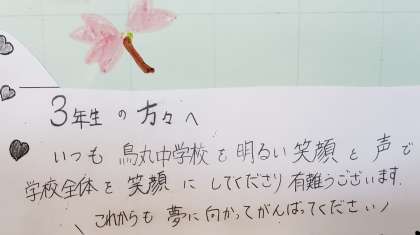 3年生の方々へ
いつも烏丸中学校を明るい笑顔と声で
学校全体を笑顔にしてくださり有難うございます.
\これからも夢に向かってがんばってください/